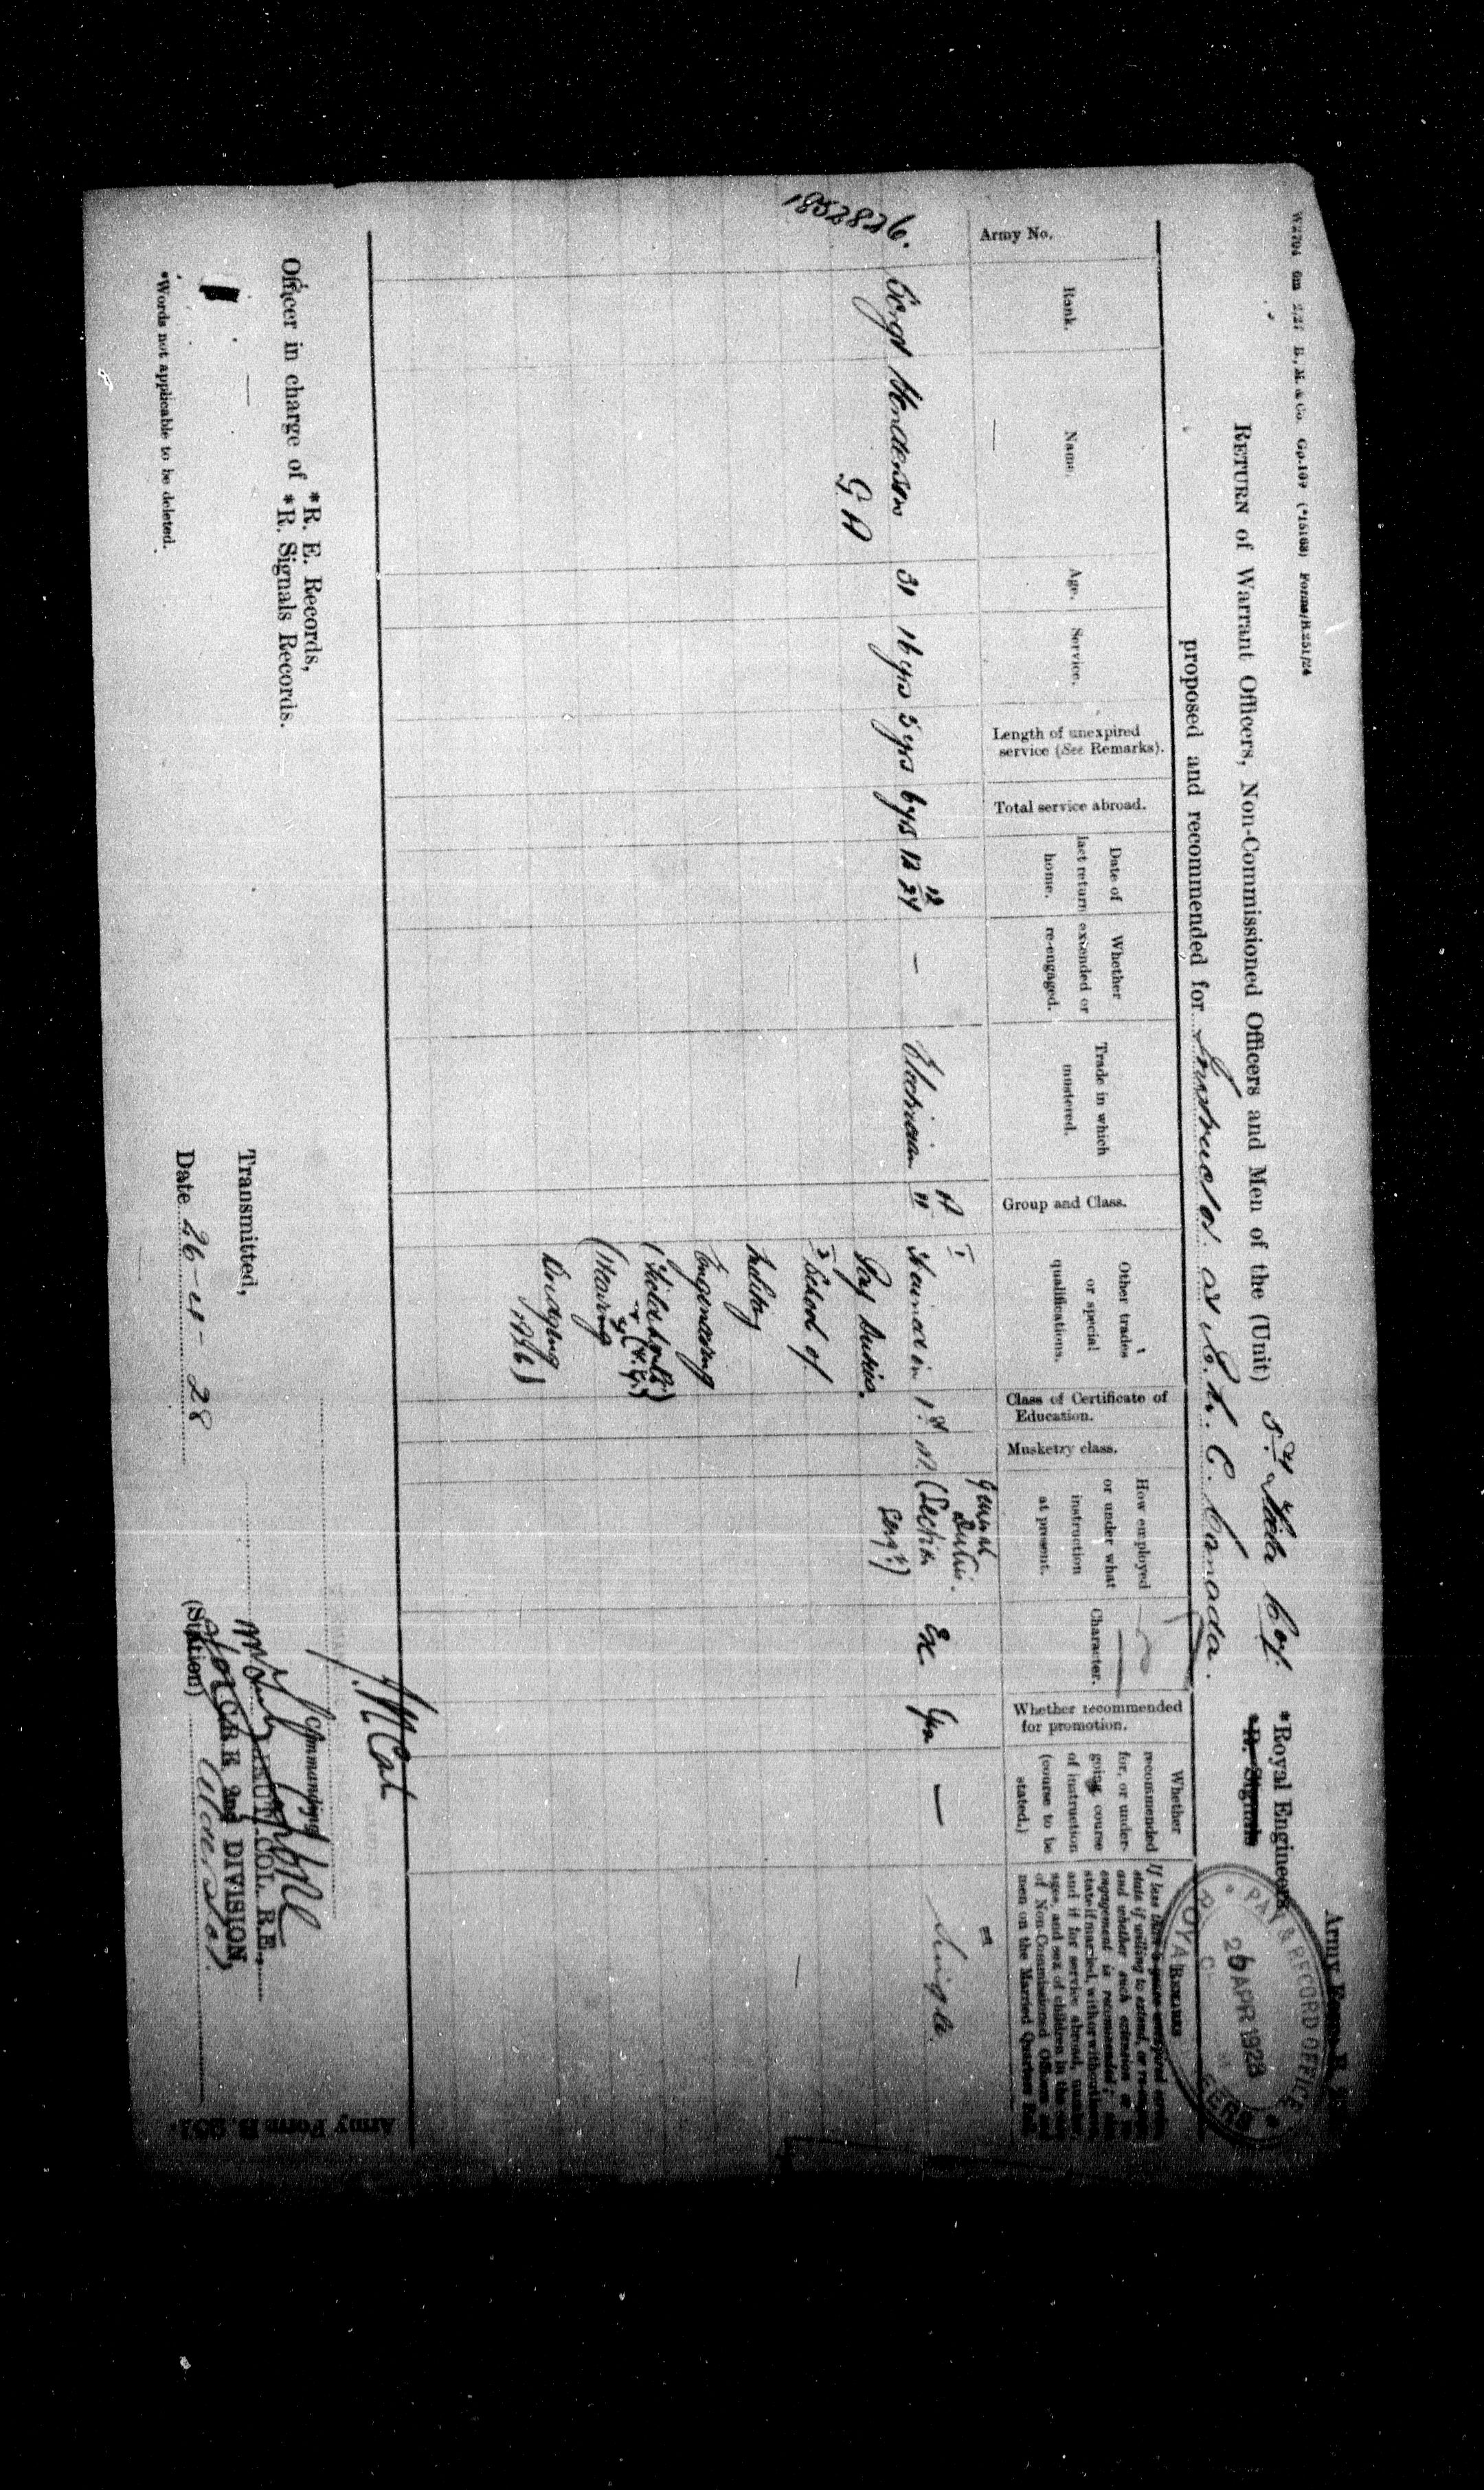 Army Form B. 251.
W2704 6m 2/27 B., M. & Co. Gp.107 (*15168) Forms/B.251/24
RETURN of Warrant Officers, Non-Commissioned Officers and Men of the (Unit) 5th Field Coy. *Royal Engineers
*R. Signals
proposed and recommended for Instructor at R. M. C. Canada.
PAY & RECORD OFFICE
26 APR 1928
ROYAL ENGINEERS
Army No.
Rank.
Name.
Age.
Service.
Length of unexpired
service (See Remarks).
Total service abroad.
Date of
last return
home.
Whether
extended or
re-engaged.
Trade in which
mustered.
Group and Class.
Other trades
or special
qualifications.
Class of Certificate of
Education.
Musketry class.
How employed
or under what
instruction
at present.
Character.
Whether recommended
for promotion.
Whether
recommended
for, or under-
going course
of instruction
(course to be
stated.)
REMARKS
If less than 5 years unexpired service
state if willing to extend, or re-engage
and whether such extension or re-
engagement is recommended; also
state if married, with or without leave,
and if for service abroad, number
ages, and sex of children in the case
of Non-Commissioned Officers and
men on the Married Quarters Roll.
1852826.
Sergt
Henderson
G. A
31
16 yrs
5 yrs
6 yrs
12
12
24
—
Electrician
A
II
I Trained in
Pay Duties.
2 School of
Military
Engineering
(Field Works)
Bridging
1926)
1st
M.
General
Duties.
(Section
Sergt)
Ex.
Yes
—
Single.
*R. E. Records,
Officer in charge of *R. Signals Records.
*Words not applicable to be deleted.
Transmitted,
Date 26-4-28
Commanding
LIEUT. COL. R.E.,
C.R.E. 2nd DIVISION
(Station)
Aldershot.
Army Form B. 251.